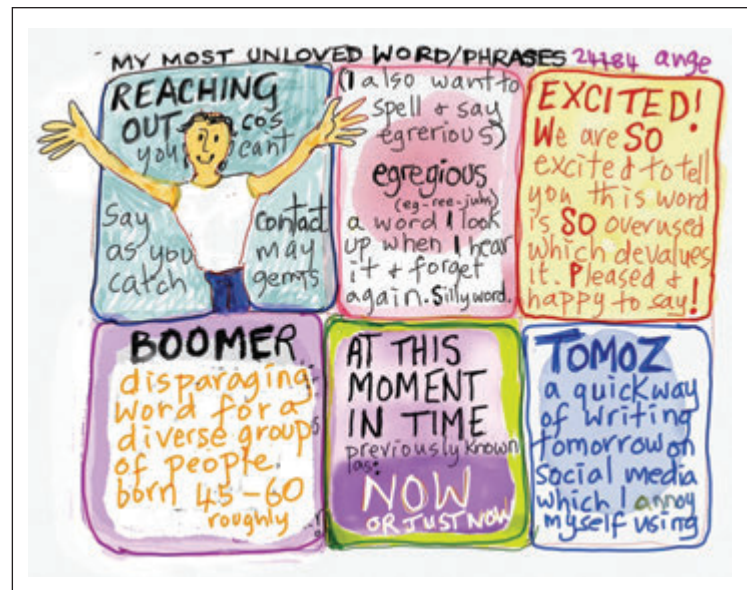 MY MOST UNLOVED WORD/PHRASES 24484 ange
REACHING
OUT cos
you can't
Say contact
as you may
catch germs
(I also want to
spell & say
egrerious)
egregious
(eg-ree-juhs)
a word I look
up when I hear
it & forget
again. Silly word.
EXCITED!
We are SO
excited to tell
you this word
is SO overused
which devalues
it. Pleased &
happy to say!
BOOMER
disparaging
word for a
diverse group
of people
born 45-60
roughly
AT THIS
MOMENT
IN TIME
previously known
as:
NOW
OR JUST NOW
TOMOZ
a quick way
of writing
tomorrow on
social media
which I annoy
myself using